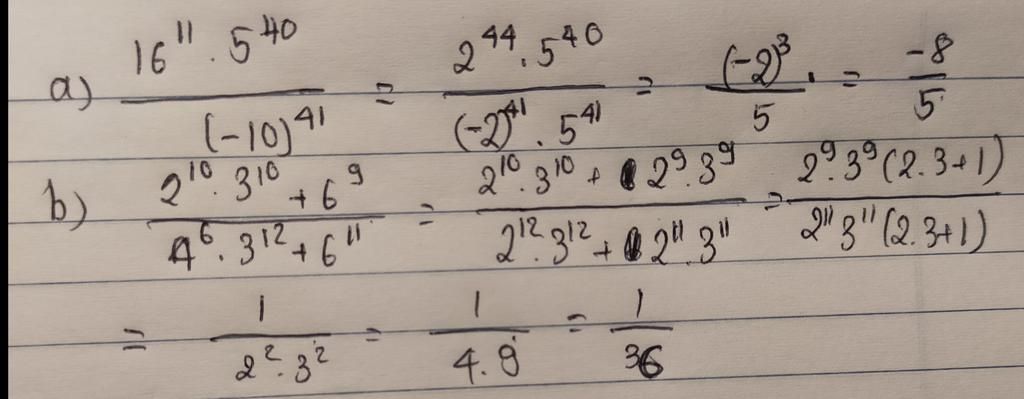 a) \frac{16^{11} . 5^{40}}{(-10)^{41}} = \frac{2^{44} . 5^{40}}{(-2)^{41} . 5^{41}} = \frac{(-2)^3}{5} . = \frac{-8}{5}
b) \frac{2^{10} . 3^{10} + 6^9}{4^6 . 3^{12} + 6^{11}} = \frac{2^{10} . 3^{10} + 2^9 . 3^9}{2^{12} . 3^{12} + 2^{11} . 3^{11}} = \frac{2^9 . 3^9 (2 . 3 + 1)}{2^{11} 3^{11} (2 . 3 + 1)}
= \frac{1}{2^2 . 3^2} = \frac{1}{4 . 9} = \frac{1}{36}